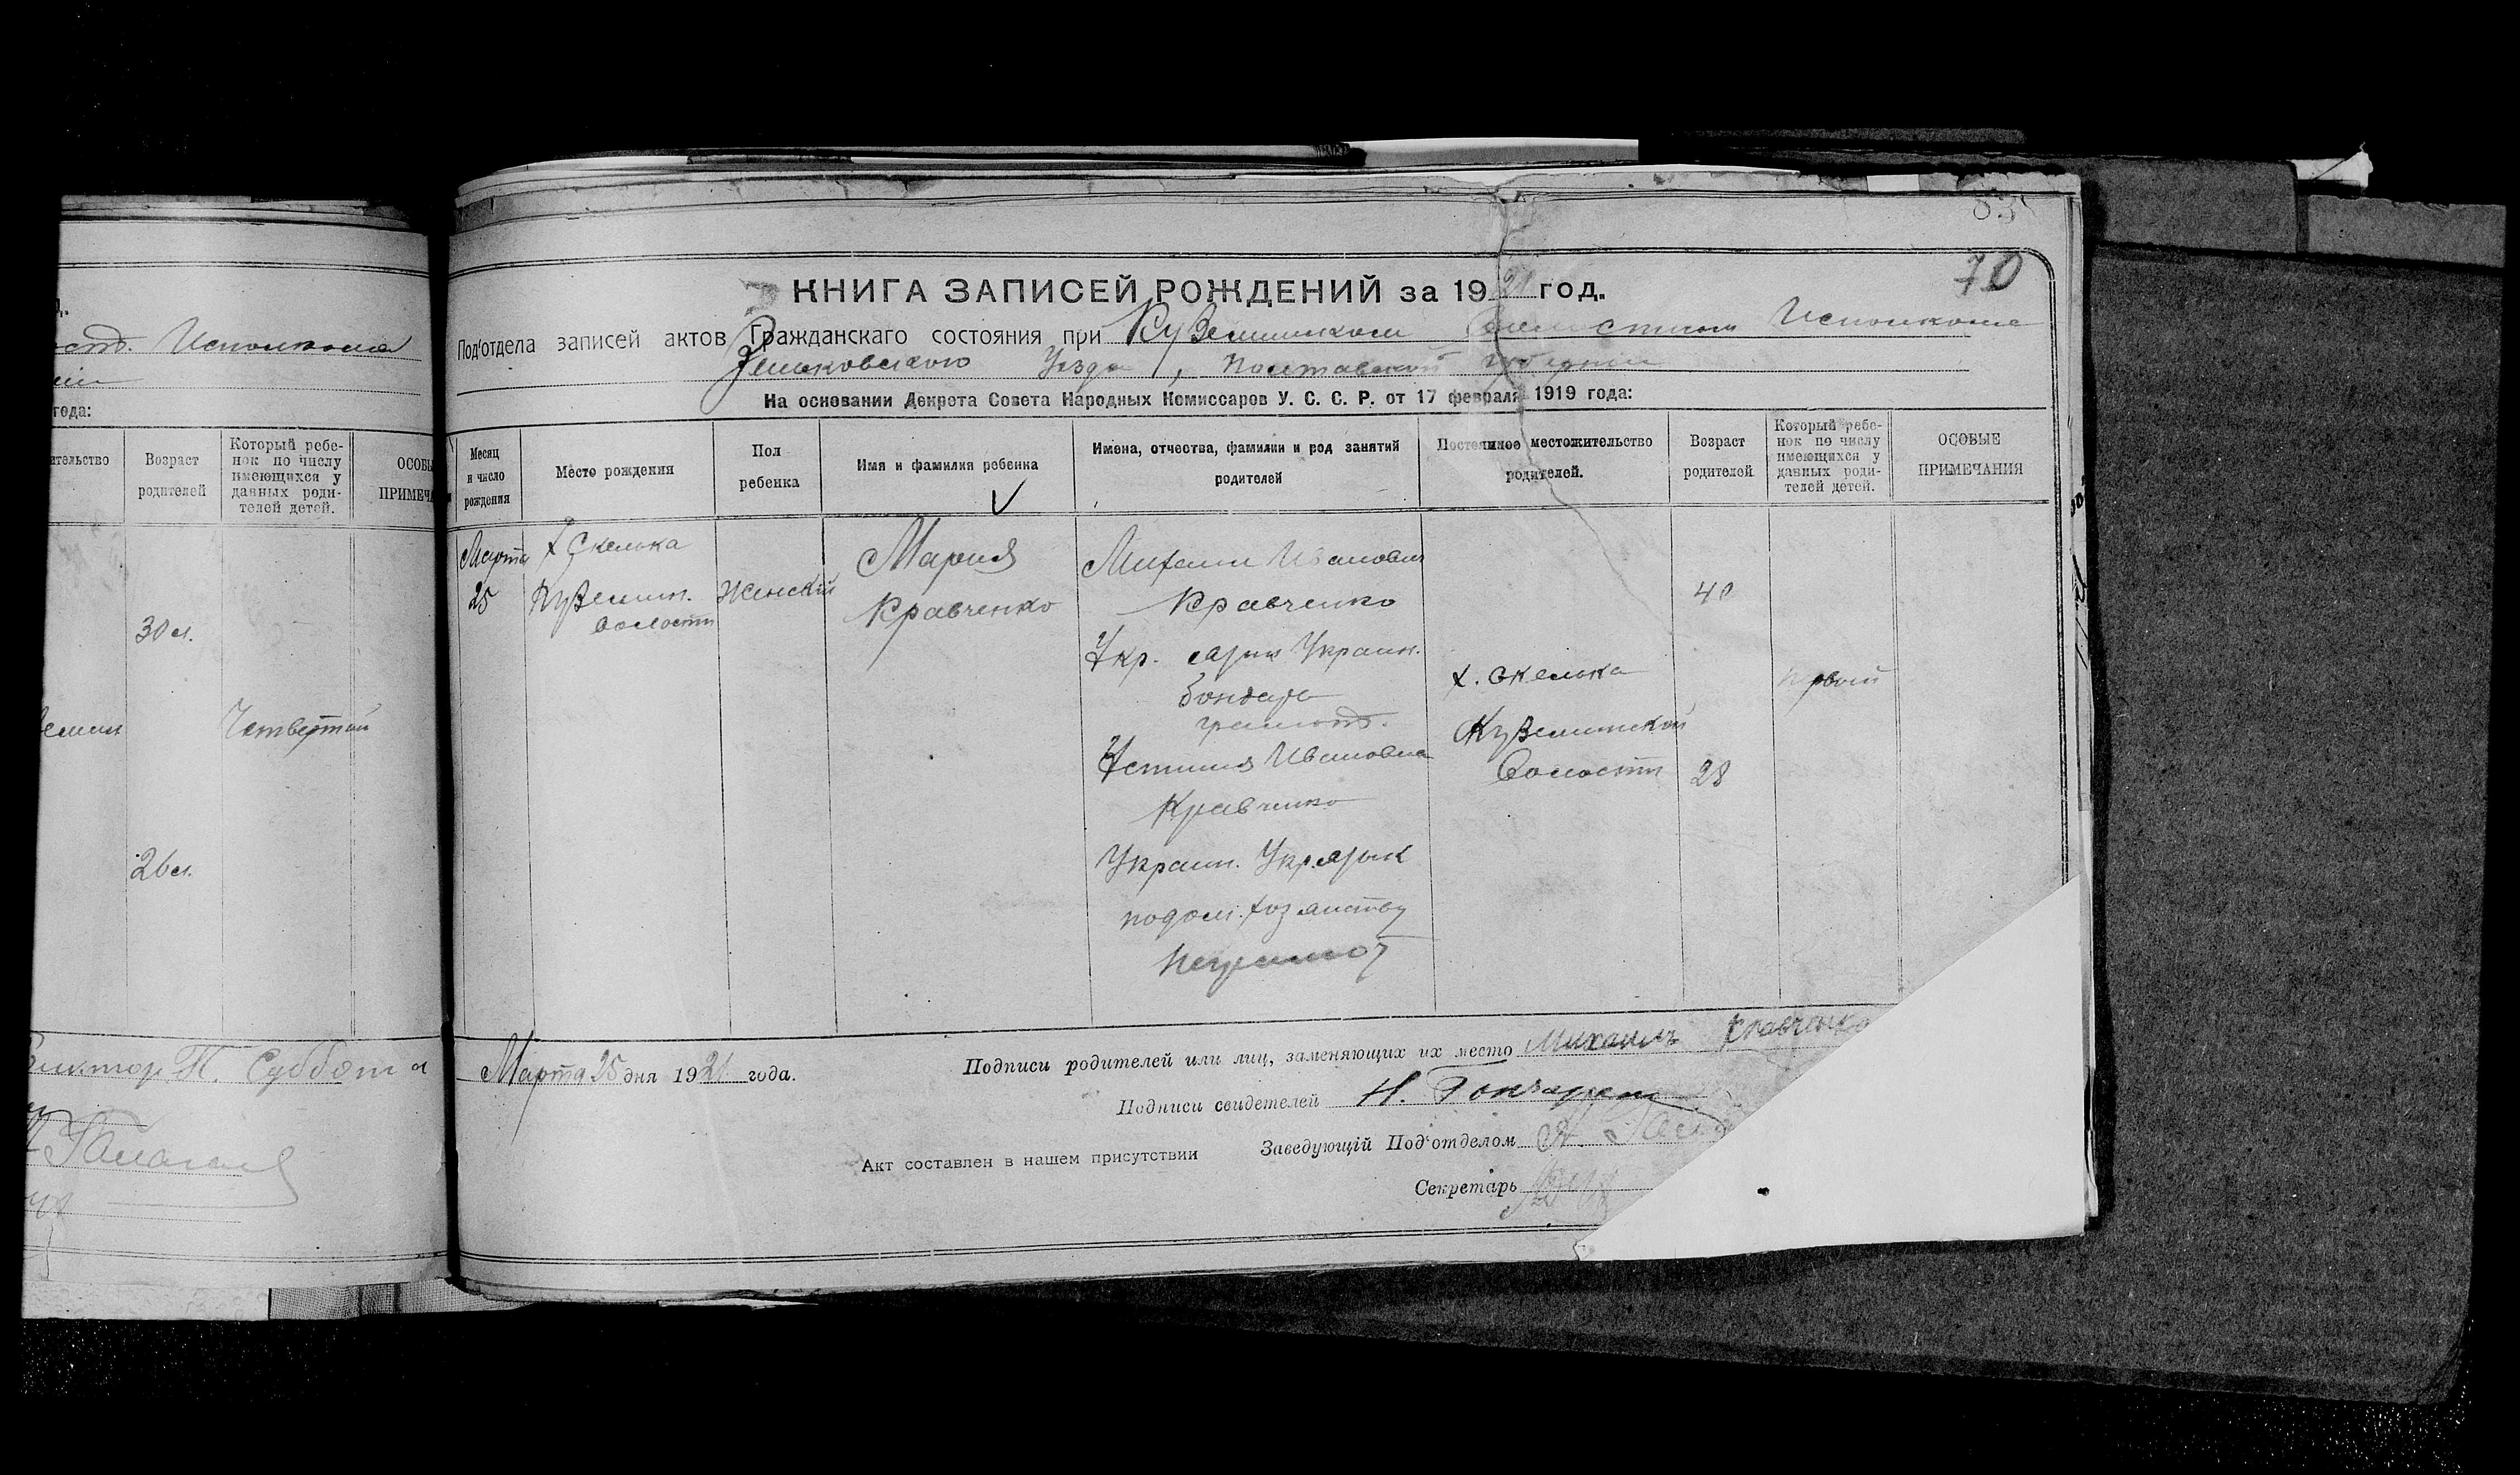 83
70
КНИГА ЗАПИСЕЙ РОЖДЕНИЙ за 1921 год.
Под'отдела записей актов Гражданскаго состояния при Куземинском Волостном Исполкоме
Зеньковского Уезда, Полтавской губернии
На основании Декрета Совета Народных Комиссаров У. С. С. Р. от 17 февраля 1919 года:
Месяц и число рождения
Место рождения
Пол ребенка
Имя и фамилия ребенка
Имена, отчества, фамилии и род занятий родителей
Постоянное местожительство родителей.
Возраст родителей
Который ребенок по числу имеющихся у данных родителей детей.
ОСОБЫЕ ПРИМЕЧАНИЯ
Марта
25
х Скелька
Куземин.
Волости
Женский
Мария
Кравченко
Михаил Иванович
Кравченко
Укр. язык Украин.
бондарь
грамот.
Устиния Ивановна
Кравченко
Украин. Укр. язык
по дом. хозяйству
Неграмот
х. Скелька
Куземинской
Волости
40
28
первый
Марта 25 дня 1921 года.
Подписи родителей или лиц, заменяющих их место Михаилъ Кравченко
Подписи свидетелей Н. Гончарен
Акт составлен в нашем присутствии
Заведующій Под'отделом
Секретарь
Исполкома
года:
Возраст
родителей
Который ребе-
нок по числу
имеющихся у
данных роди-
телей детей.
30 л.
Четвертый
26 л.
Суббота